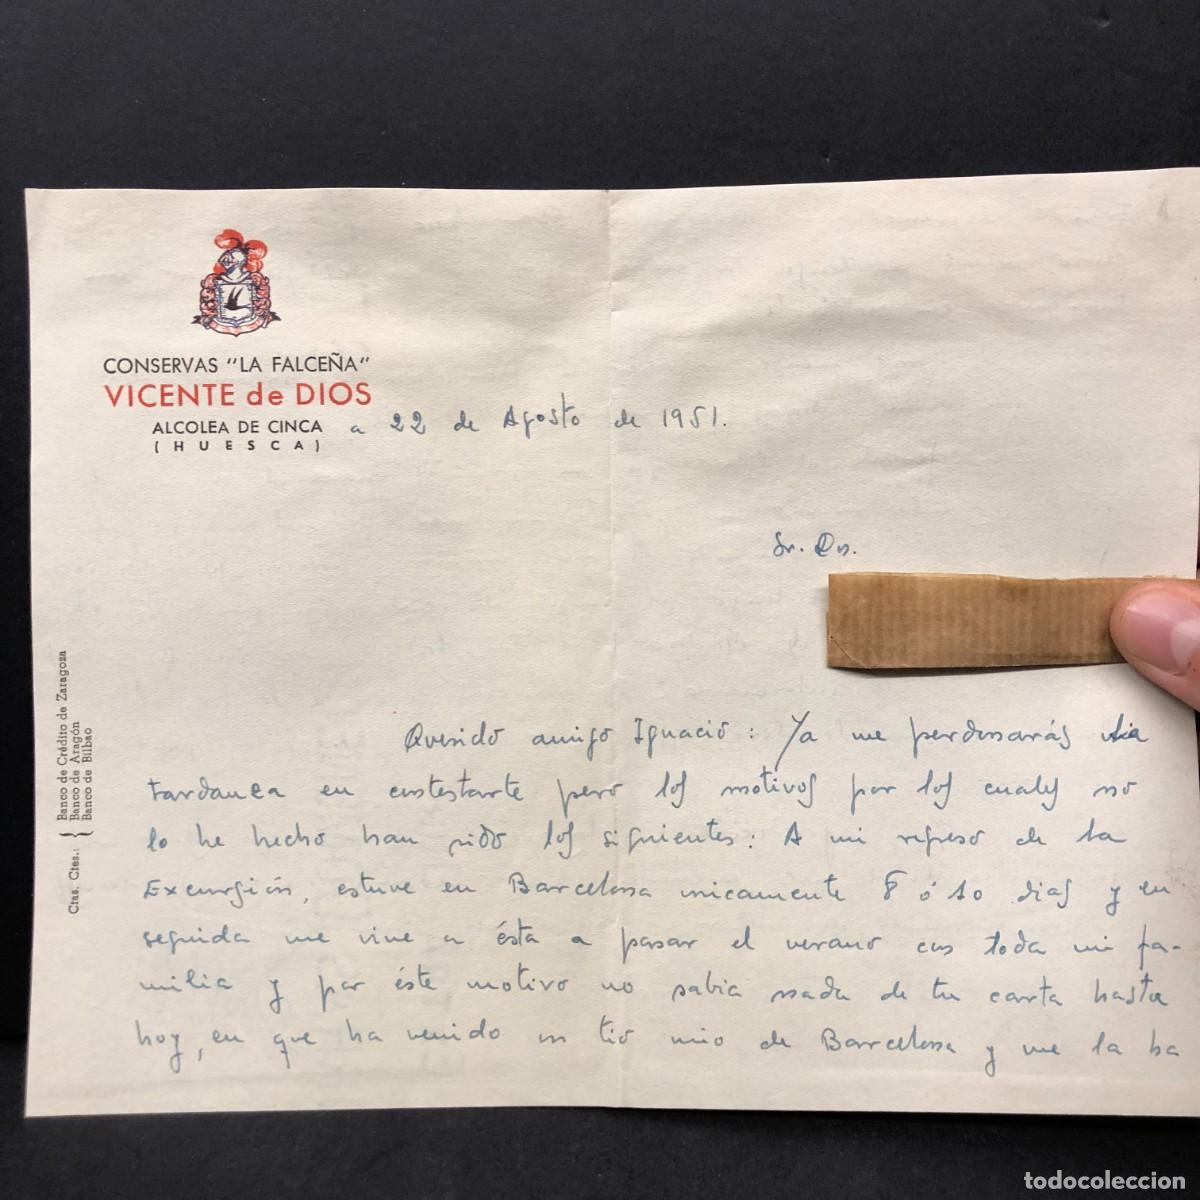 CONSERVAS "LA FALCEÑA"
VICENTE de DIOS
ALCOLEA DE CINCA
(HUESCA)
a 22 de Agosto de 1951.
Sr. Dn.
Querido amigo Ignacio: Ya me perdonarás
tardanza en contestarte pero los motivos por los cuales no
lo he hecho han sido los siguientes: A mi regreso de la
Excursión, estuve en Barcelona unicamente 8 ó 10 dias y en
seguida me vine a ésta a pasar el verano con toda mi fa-
milia y por éste motivo no sabia nada de tu carta hasta
hoy, en que ha venido un tio mio de Barcelona y me la ha
Ctas. Ctes.: { Banco de Crédito de Zaragoza
Banco de Aragón
Banco de Bilbao
todocoleccion